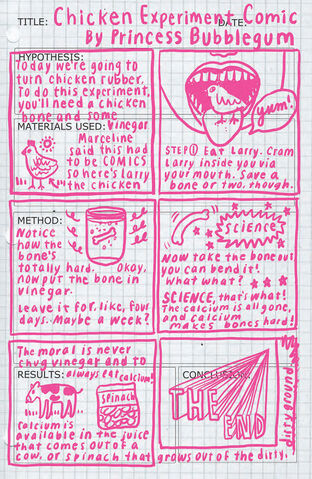 TITLE: Chicken Experiment Comic
DATE:
By Princess Bubblegum
HYPOTHESIS:
Today we're going to
turn chicken rubber.
To do this experiment,
you'll need a chicken
bone and some
MATERIALS USED: Vinegar.
Marceline
said this had
to be COMICS
so here's Larry
the chicken
yum!
STEP ① Eat Larry. Cram
Larry inside you via
your mouth. Save a
bone or two, though.
METHOD:
Notice
how the
bone's
totally hard. Okay,
now put the bone in
vinegar.
Leave it for, like, four
days. Maybe a week?
SCIENCE
Now take the bone out
you can bend it!
what what?
SCIENCE, that's what!
The calcium is all gone,
and calcium
makes bones hard!
The moral is never
chug vinegar and to
RESULTS: always eat calcium!
Spinach
Calcium is
available in the juice
that comes out of a
cow, or spinach that grows out of the dirty,
dirty ground
CONCLUSION:
THE
END